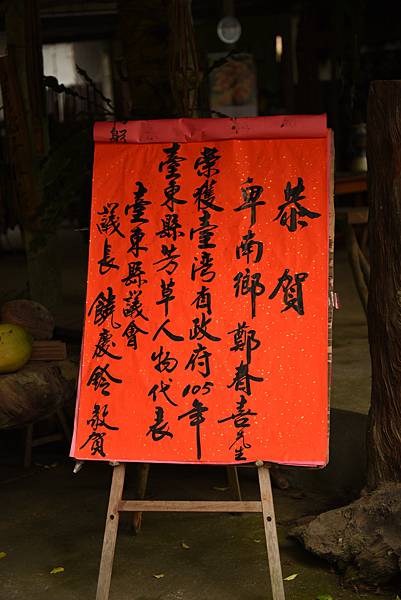 恭賀
卑南鄉鄭春喜先生
榮獲臺湾省政府105年
臺東縣芳草人物代表
臺東縣議會
議長饒慶鈴敬賀